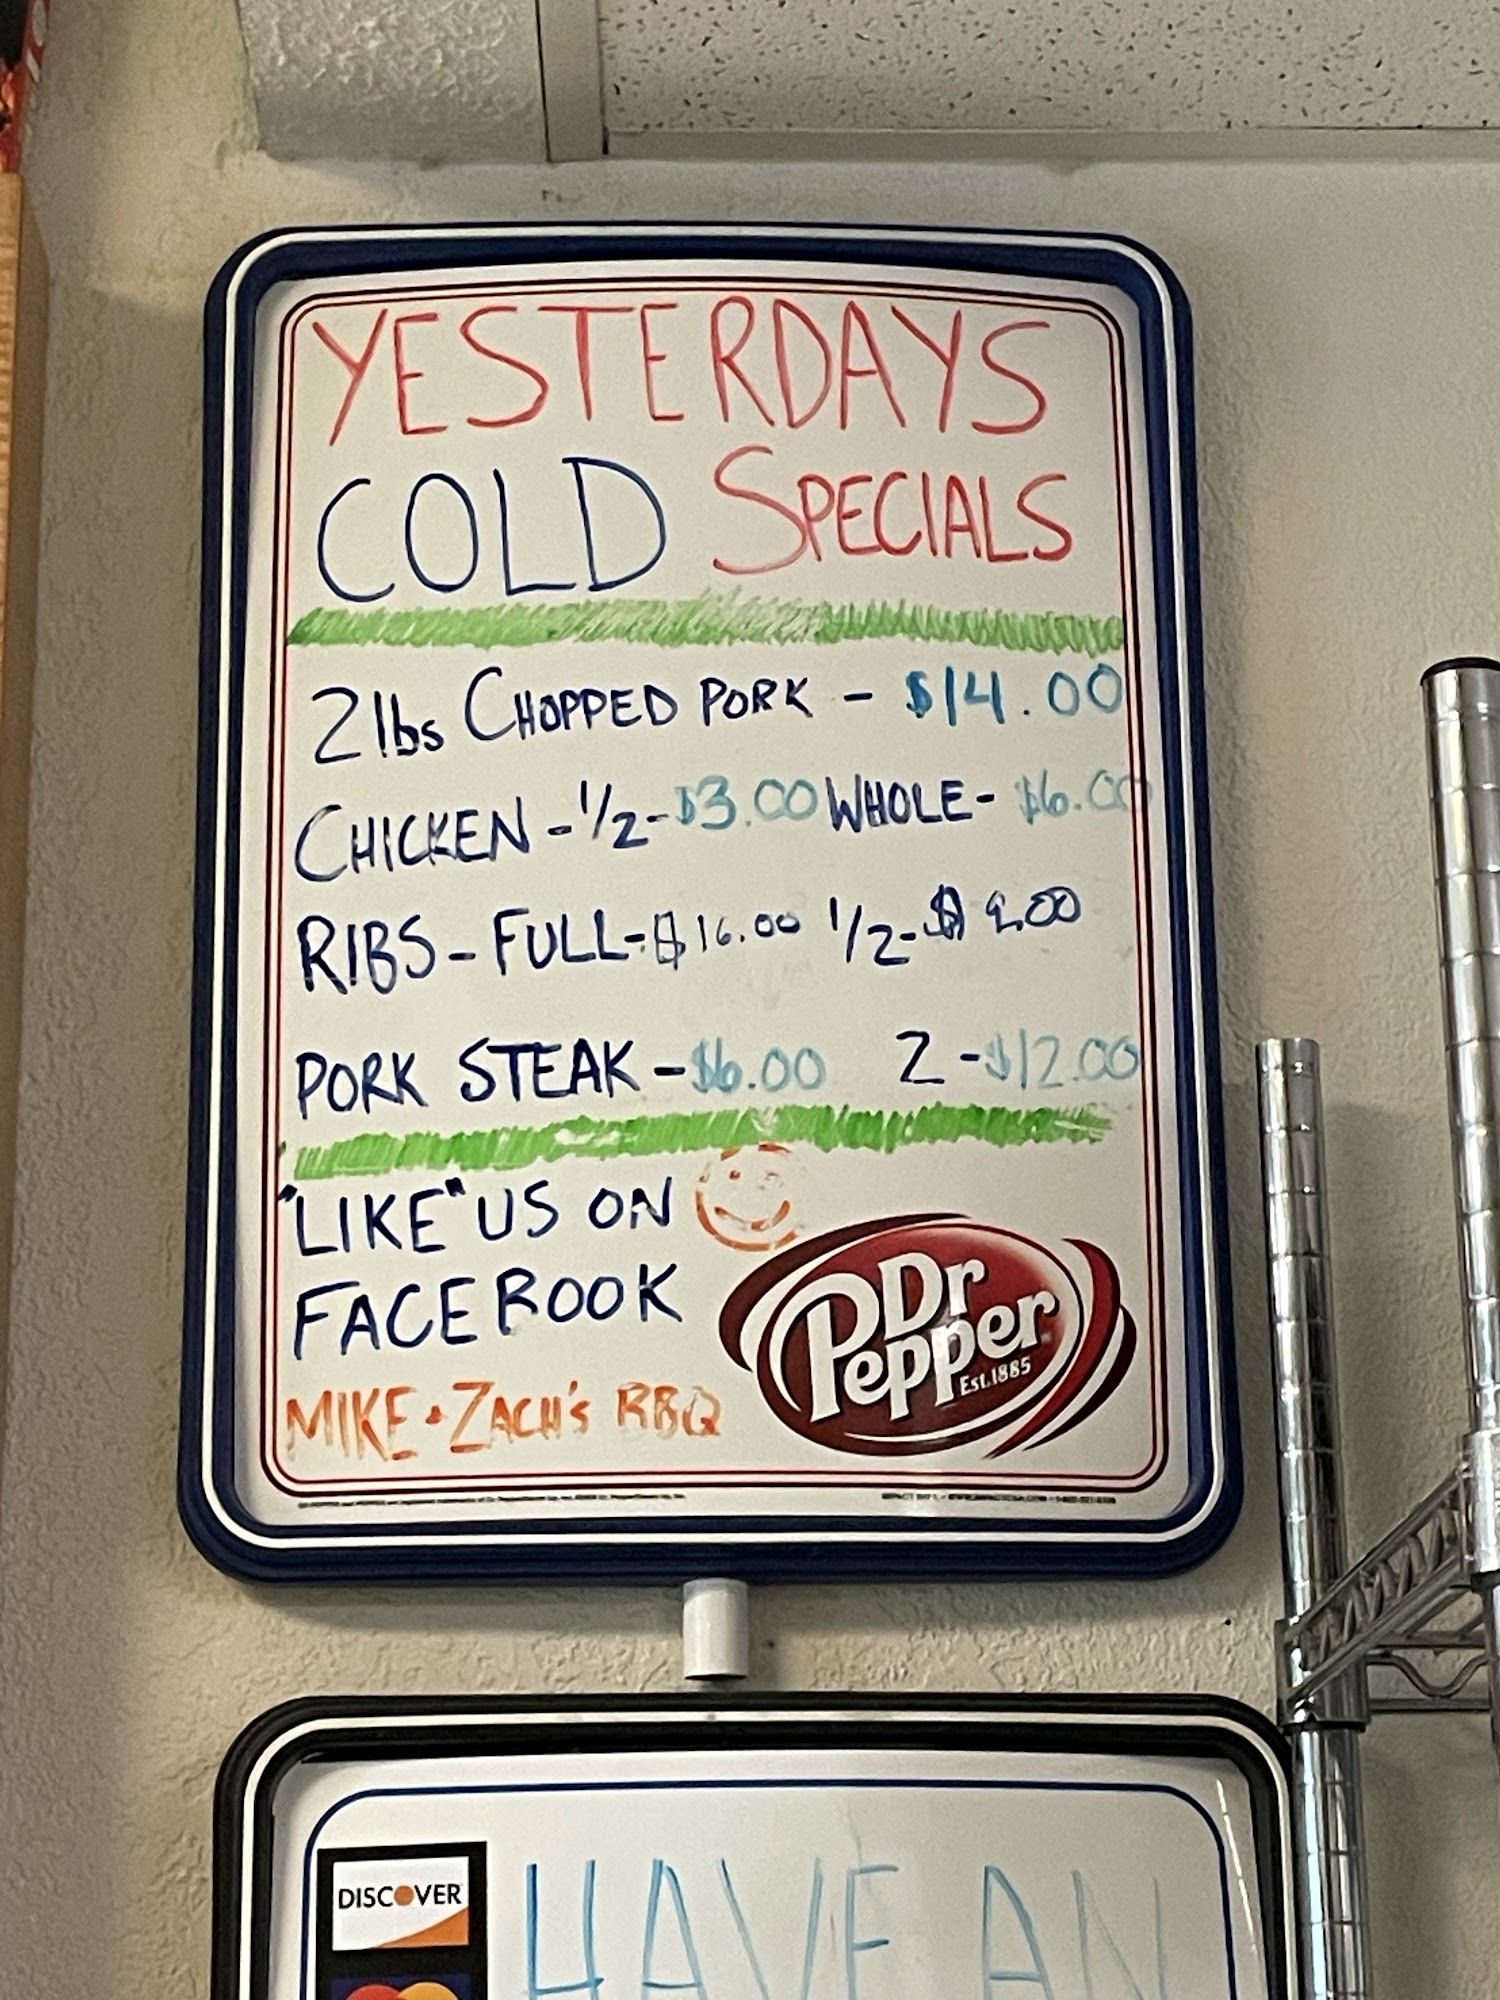 YESTERDAYS
COLD SPECIALS
2 lbs CHOPPED PORK - $14.00
CHICKEN - 1/2 - $3.00 WHOLE - $6.00
RIBS - FULL - $16.00 1/2 - $9.00
PORK STEAK - $6.00 2 - $12.00
"LIKE" US ON
FACEBOOK
MIKE + ZACH'S BBQ
Dr
Pepper
Est.1885
DISCOVER
HAVE AN